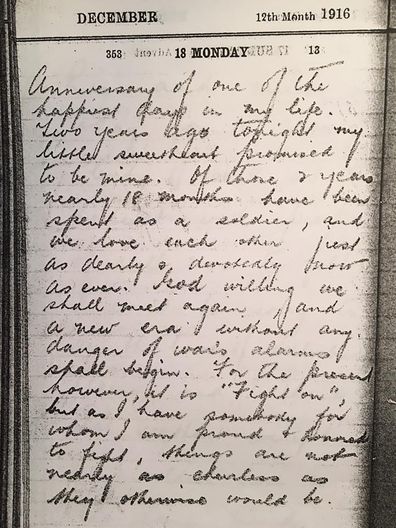 DECEMBER 12th Month 1916
353 18 MONDAY 13
Anniversary of one of the
happiest days in my life.
Two years ago tonight my
little sweetheart promised
to be mine. Of those 2 years
nearly 18 months have been
spent as a soldier, and
we love each other just
as dearly & devotedly now
as ever. God willing we
shall meet again, and
a new era without any
danger of war's alarms
shall begin. For the present
however, it is "Fight on",
but as I have somebody for
whom I am proud & honored
to fight, things are not
nearly as cheerless as
they otherwise would be.